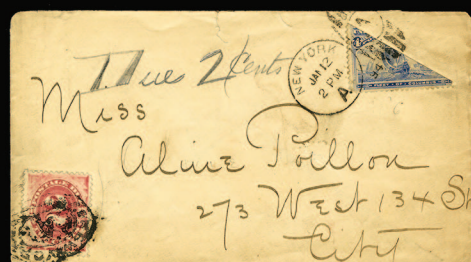 Dues 2 Cents
NEW YORK
JAN 12
2 PM
A.
94
Miss
Aline Poillon
273 West 134 St
City